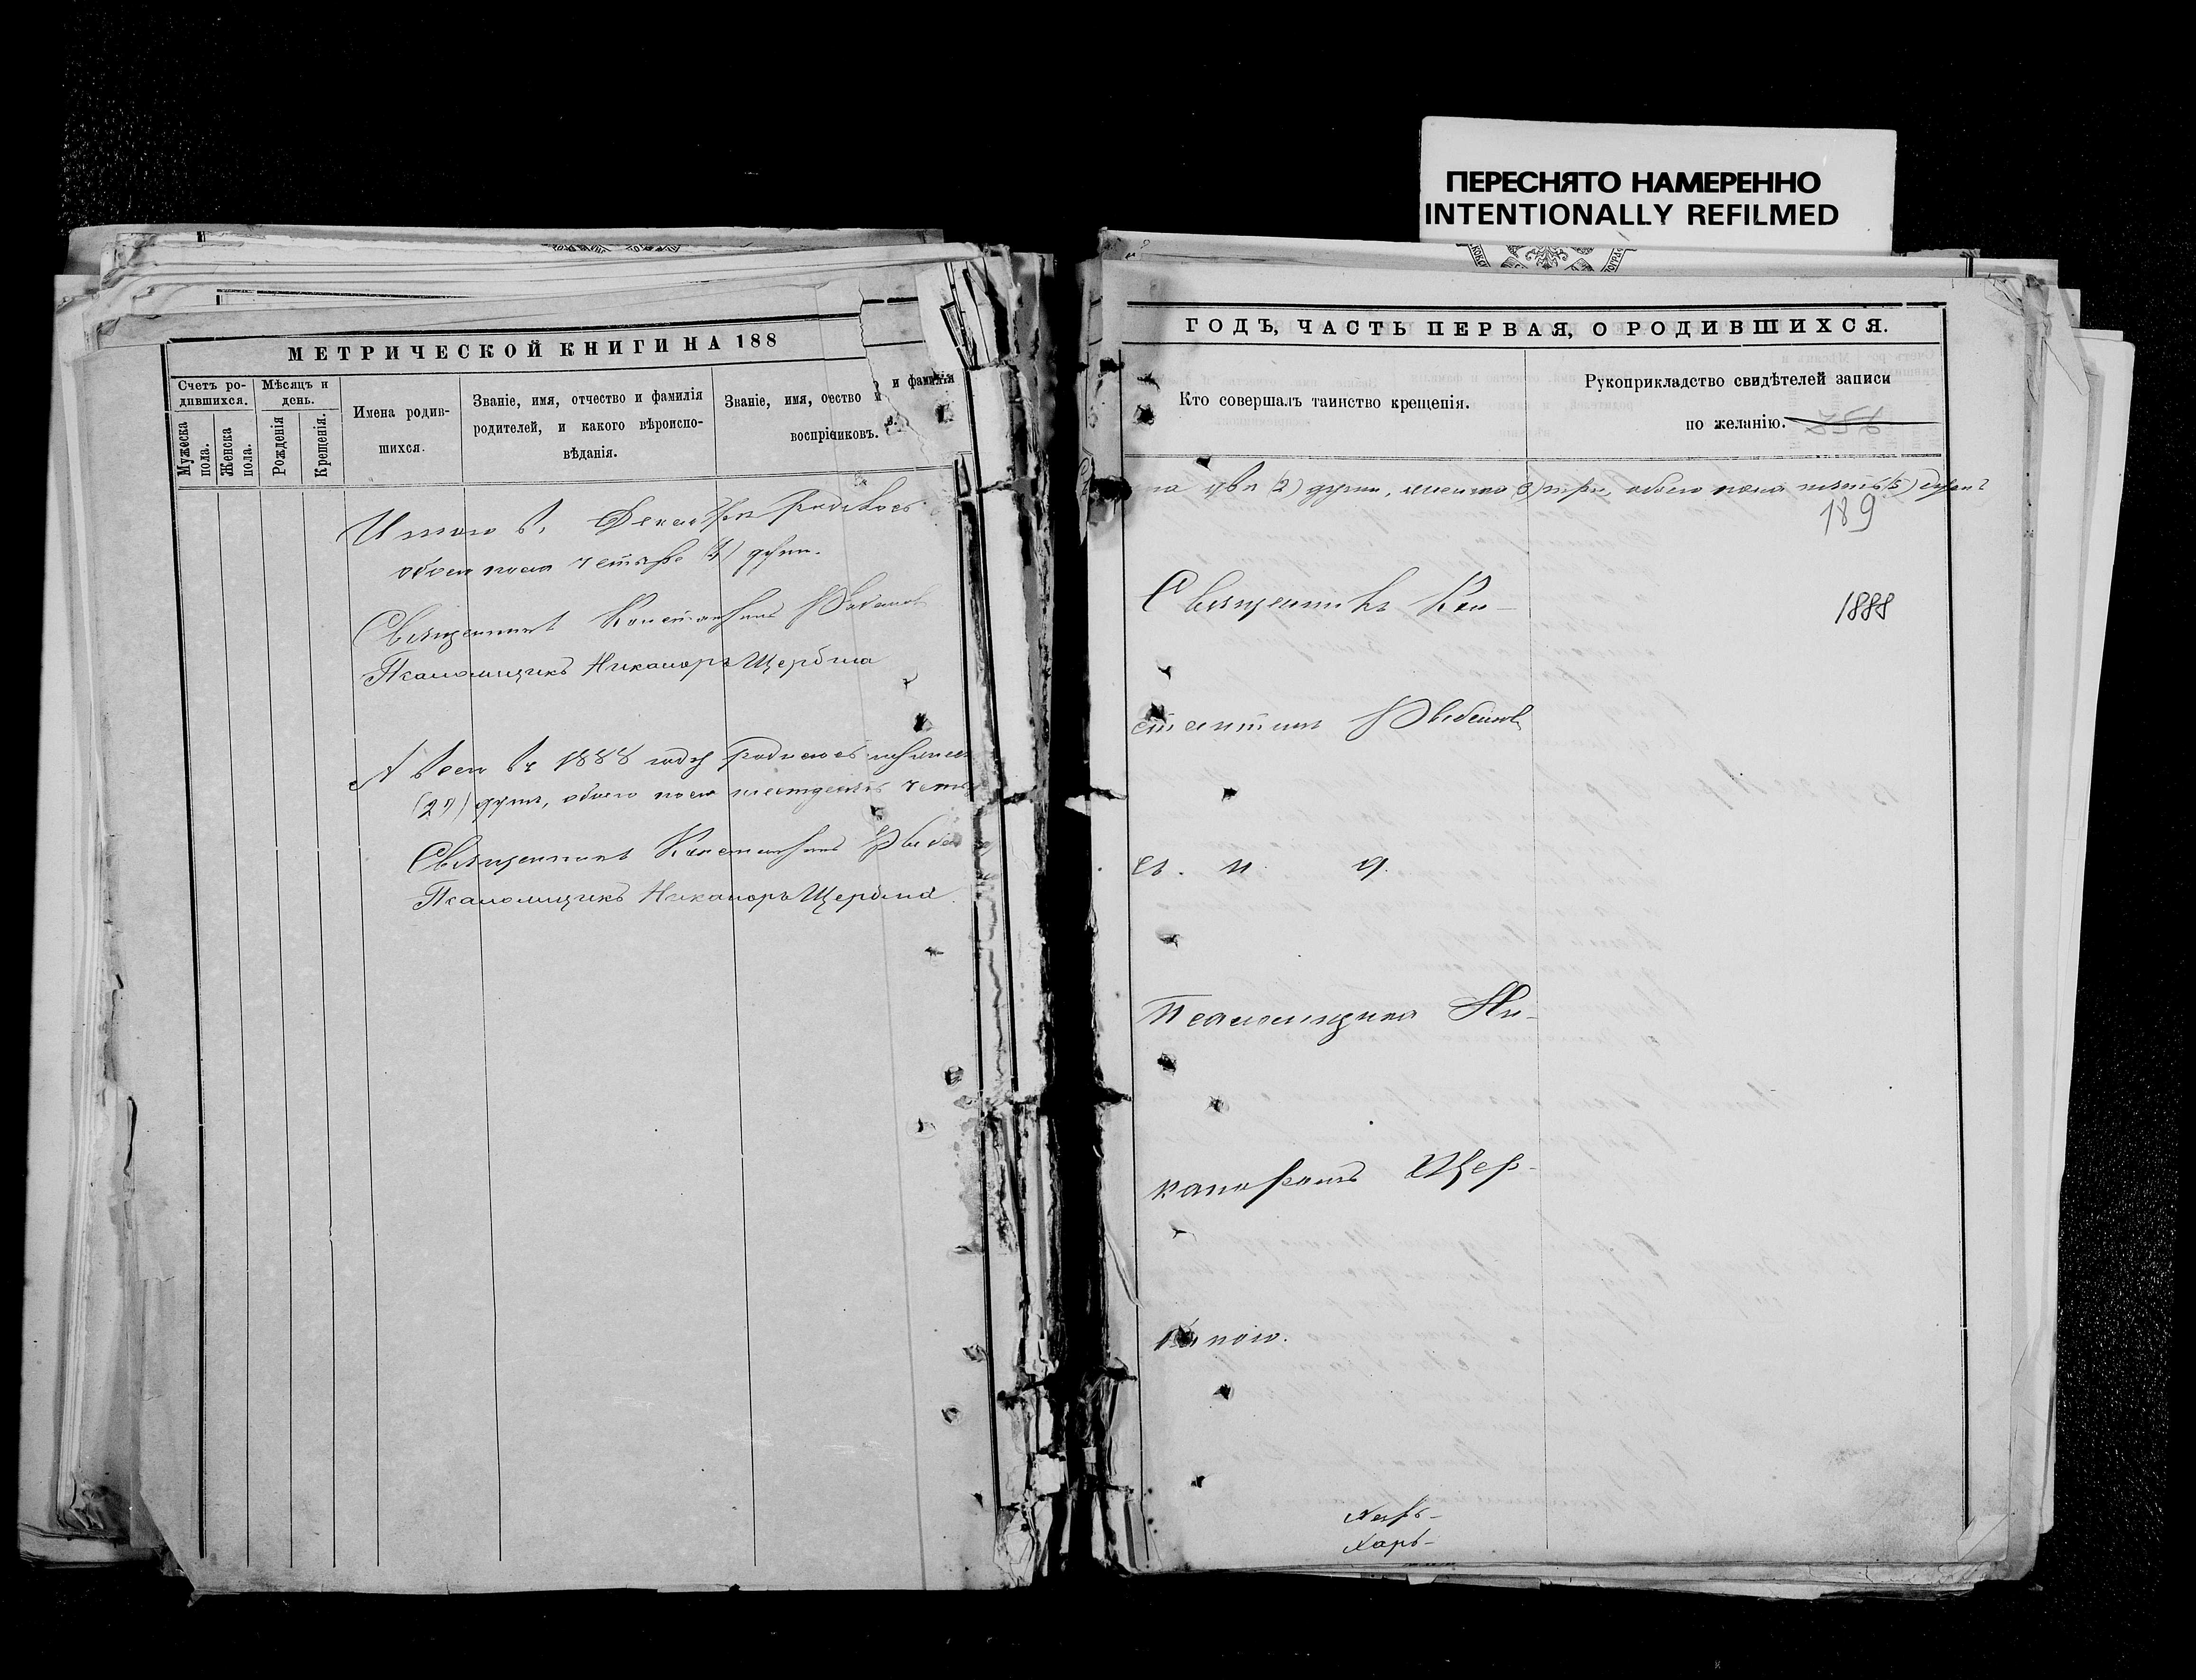 ПЕРЕСНЯТО НАМЕРЕННО
INTENTIONALLY REFILMED
МЕТРИЧЕСКОЙ КНИГИ НА 188
Счетъ ро-
дившихся.
Мѣсяцъ и
день.
Мужеска
пола.
Женска
пола.
Рожденія
Крещенія.
Имена родив-
шихся.
Званіе, имя, отчество и фамилія
родителей, и какого вѣроиспо-
вѣданія.
Званіе, имя,
и фамилія
Итого въ Декабрѣ родилось
обоего пола четыре (4) души.
Священникъ Константинъ
Псаломщикъ Никаноръ Щербина
А всего въ 1888 году родилось
(29) душъ, обоего пола шестдесятъ
Священникъ Константинъ
Псаломщикъ Никаноръ Щербина.
ГОДЪ, ЧАСТЬ ПЕРВАЯ, О РОДИВШИХСЯ.
Кто совершалъ таинство крещенія.
Рукоприкладство свидѣтелей записи
по желанію.
два (2) души, женска (3) три, обоего пола пять (5) душъ
189
Священникъ Кон-
1888
стантинъ
съ и. д.
Псаломщика Ни-
каноромъ Щер-
биною.
Харь-